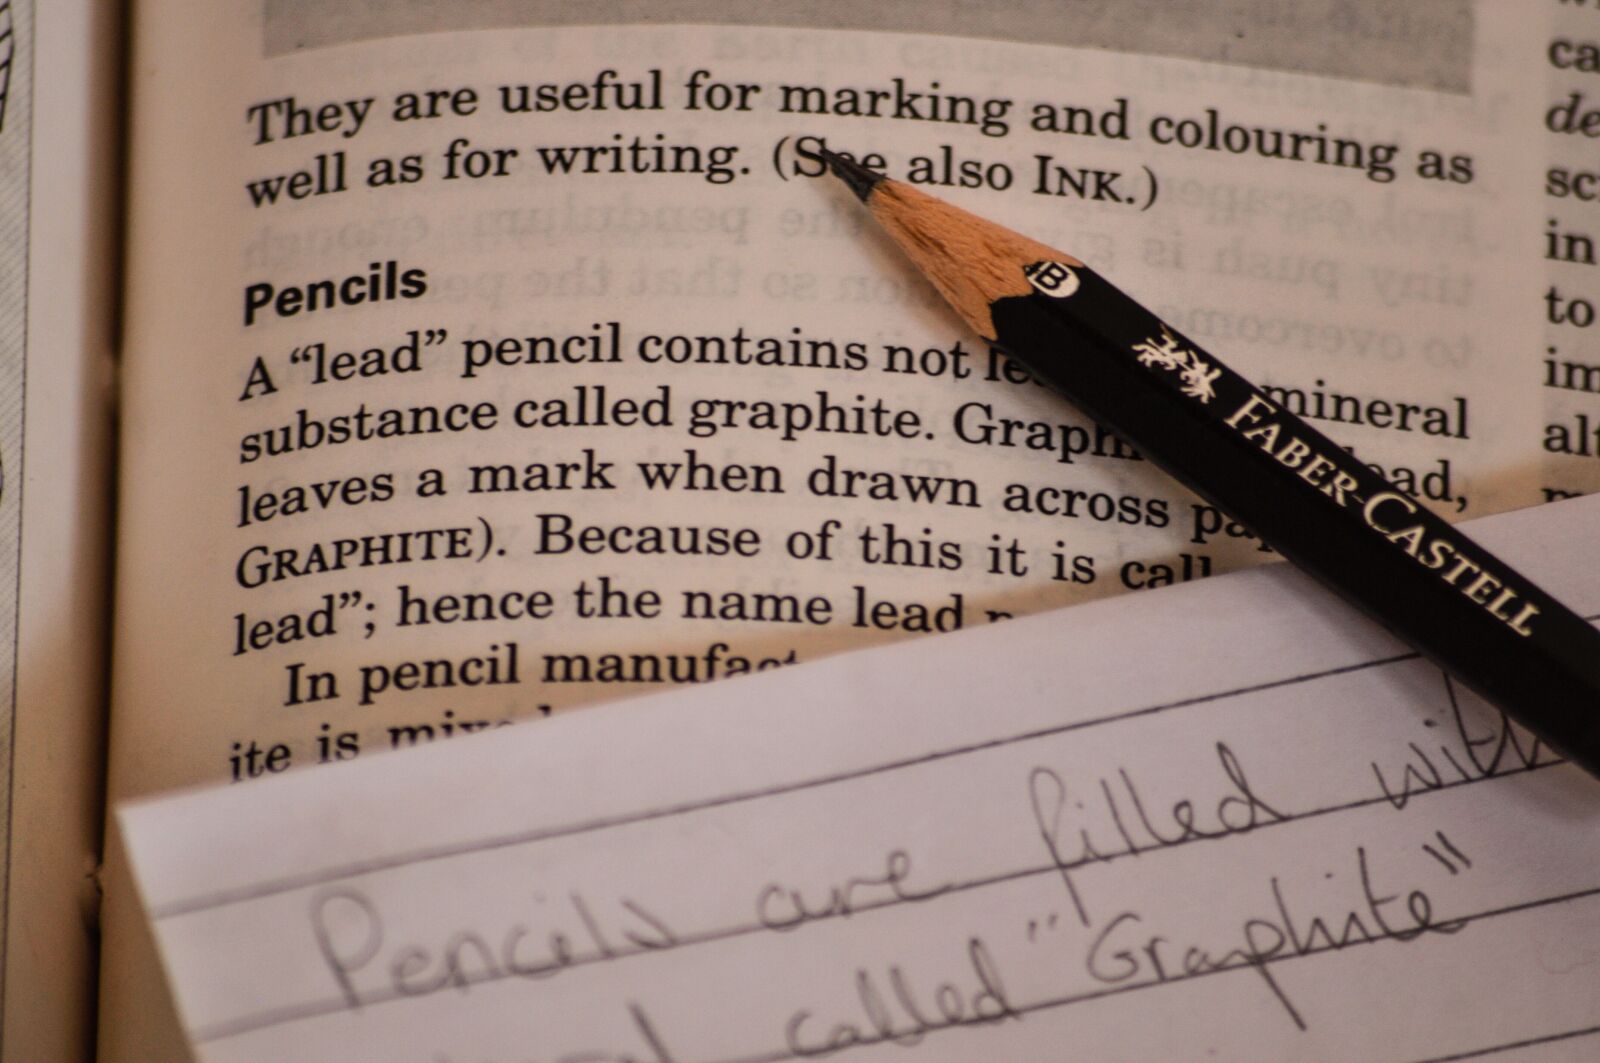 They are useful for marking and colouring as
well as for writing. (See also INK.)
Pencils
A “lead” pencil contains not mineral
substance called graphite.
leaves a mark when drawn across
GRAPHITE). Because of this it is
lead”; hence the name lead
In pencil
ite is
B
FABER-CASTELL
Pencils are filled with
called "Graphite"
ca
de
sc
in
to
im
alt